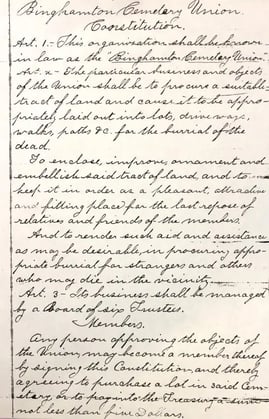 Binghamton Cemetery Union.
Constitution.
Art. 1.- This organization shall be known
in law as the Binghamton Cemetery Union.
Art. 2 - The particular business and objects
of the Union shall be to procure a suitable
tract of land and cause it to be appro-
priately laid out into lots, drive ways,
walks, paths &c. for the burrial of the
dead.
To enclose, improve, ornament and
embellish said tract of land, and to
keep it in order as a pleasant, attractive
and fitting place for the last repose of
relatives and friends of the members.
And to render such aid and assistance
as may be desirable, in procuring appro-
priate burrial for strangers and others
who may die in the vicinity.
Art. 3 - Its business shall be managed
by a Board of six Trustees.
Members.
Any person approving the objects of
the Union, may become a member thereof
by signing this Constitution, and thereby
agreeing to purchase a lot in said Cem-
etery, or to pay into the Treasury a sum
not less than five Dollars.